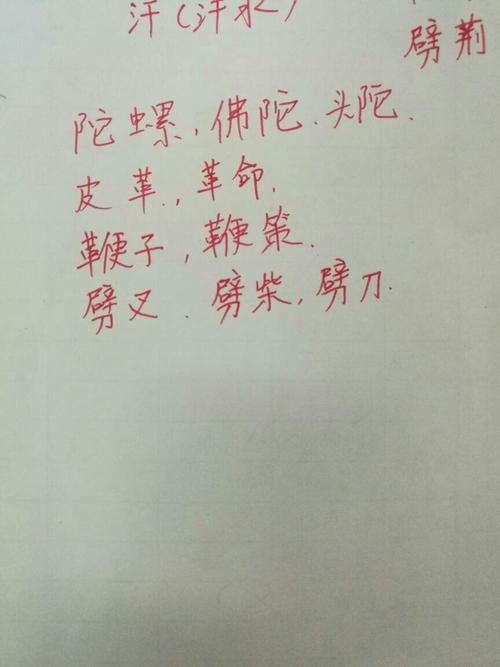 汗(汗水)
劈荆
陀螺,佛陀.头陀.
皮革.,革命.
鞭子,鞭策.
劈叉.劈柴,劈刀.